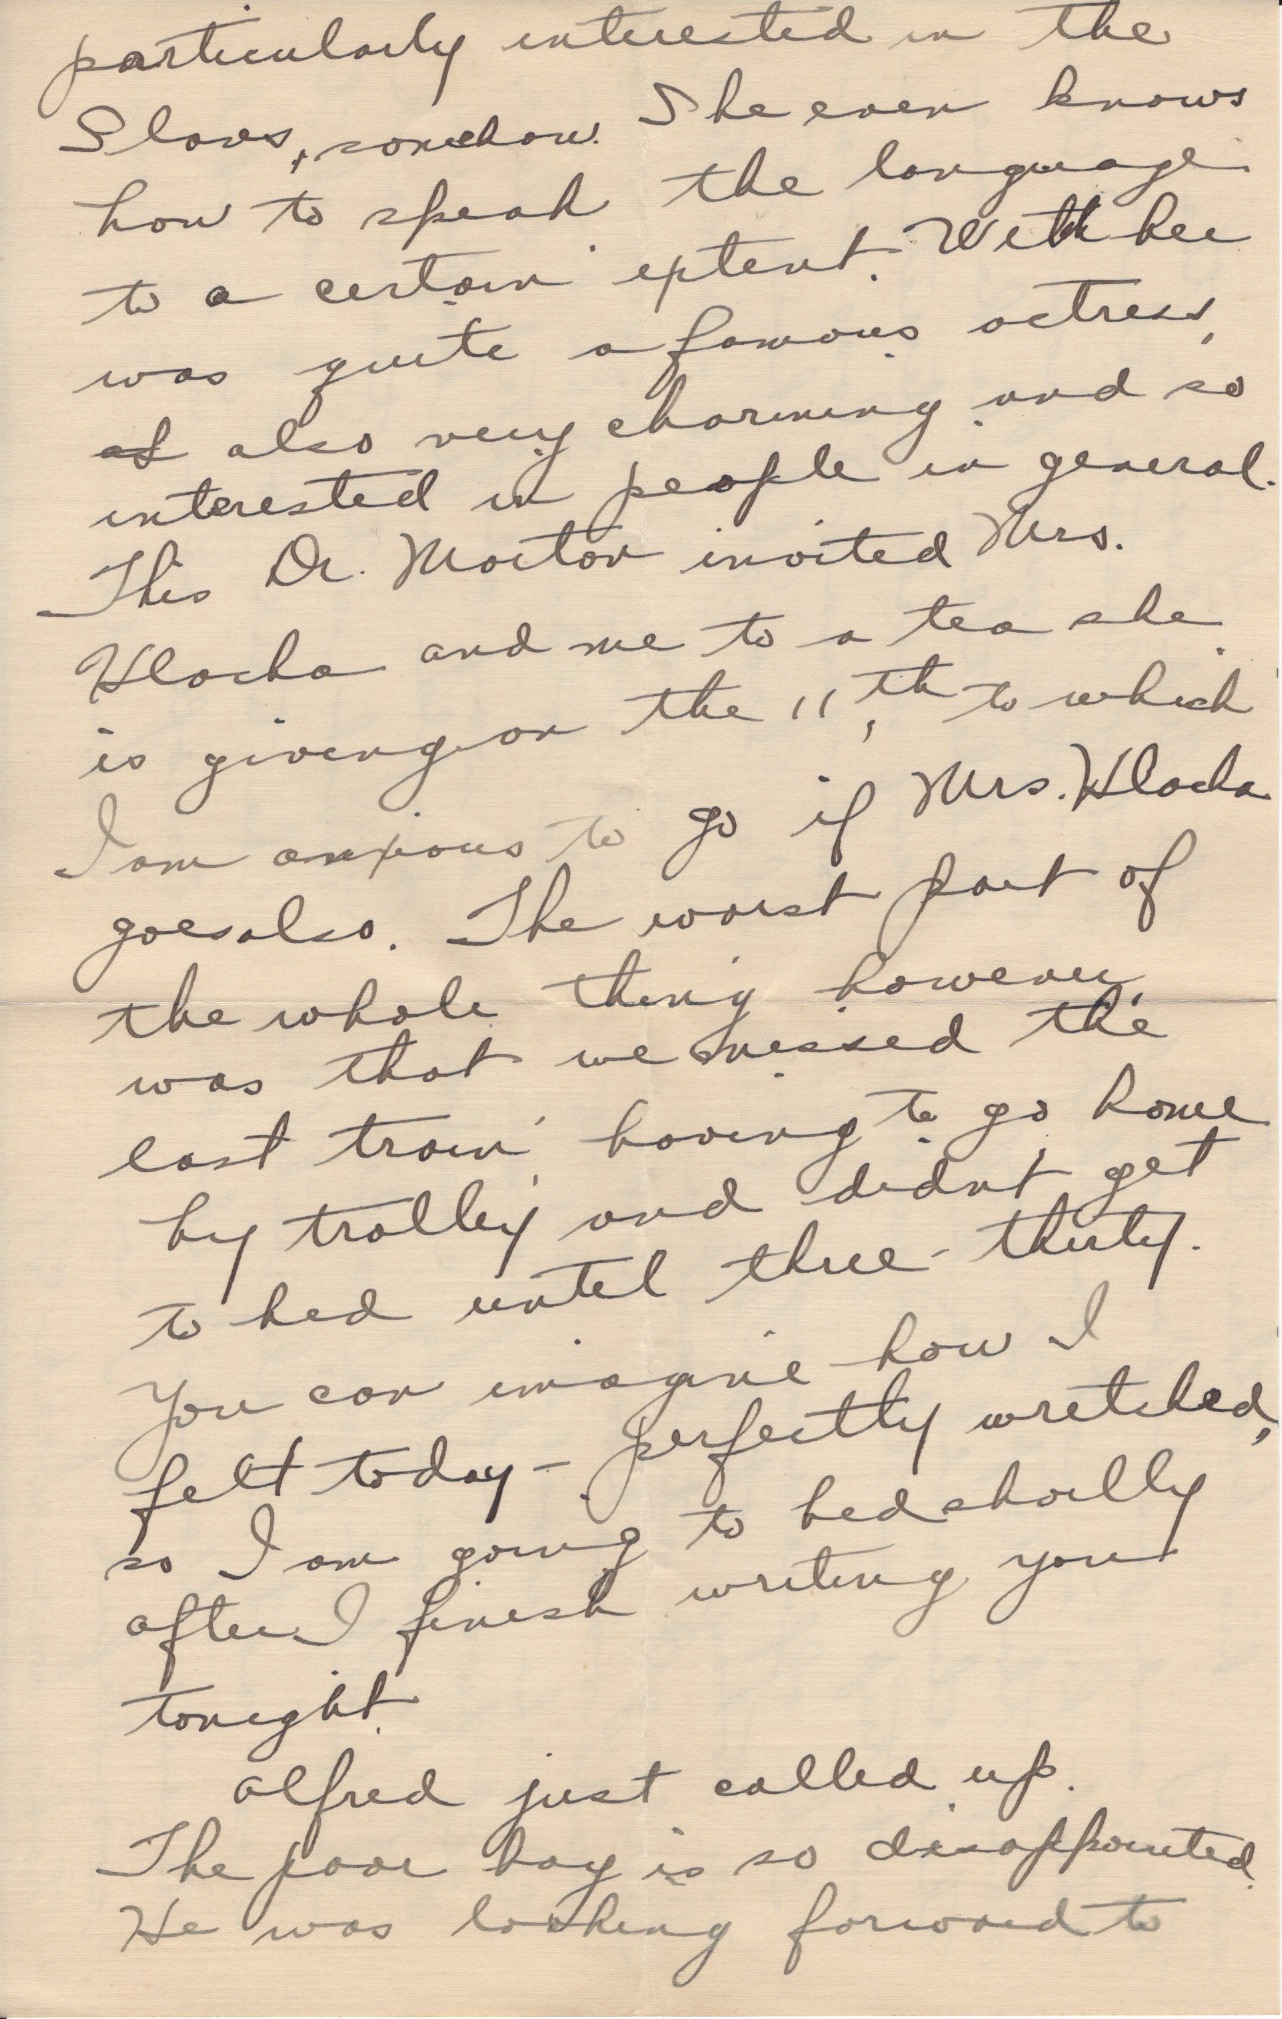 particularly interested in the
Slavs, somehow. She even knows
how to speak the language
to a certain extent. With her
was quite a famous actress,
also very charming and so
interested in people in general.
This Dr. Morton invited Mrs.
Hlocha and me to a tea she
is giving on the 11th, to which
I am anxious to go if Mrs. Hlocha
goes also. The worst part of
the whole thing however,
was that we missed the
last train, having to go home
by trolley and didn't get
to bed until three-thirty.
You can imagine how I
felt today - perfectly wretched,
so I am going to bed shortly
after I finish writing you
tonight.
Alfred just called up.
The poor boy is so disappointed.
He was looking forward to